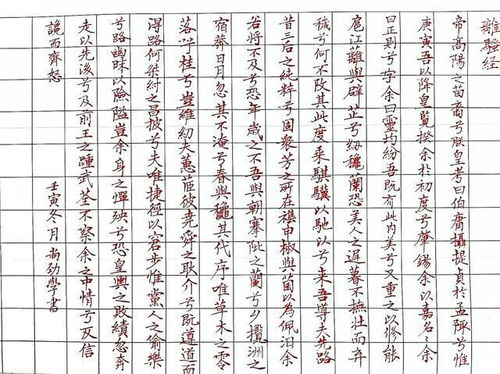 離騷経
帝高陽之苗裔兮朕皇考曰伯庸攝提貞於孟陬兮惟
庚寅吾以降皇覽揆余於初度兮肇錫余以嘉名々余
曰正則兮字余曰靈均紛吾既有此內美兮又重之以脩能
扈江蘺與辟芷兮紉穐蘭恐美人之遲暮不撫壯而弃
穢兮何不改其此度乘騏驥以馳以兮来吾導夫先路
昔三后之純粹兮固衆芳之所在雜申椒與菌以為佩汩余
若將不及兮恐年歲之不吾與朝搴阰之蘭兮夕攬洲之
宿莽日月忽其不淹兮春與穐其代序唯草木之零
落兮桂兮豈維紉夫蕙茞彼堯舜之耿介兮既遵道而
得路何桀紂之昌披兮夫唯捷徑以窘步惟黨人之偷樂
兮路幽昧以險隘豈余身之憚殃兮恐皇輿之敗績忽奔
走以先後兮及前王之踵武荃不察余之中情兮反信
讒而齊怒
壬寅冬月尚劲學書